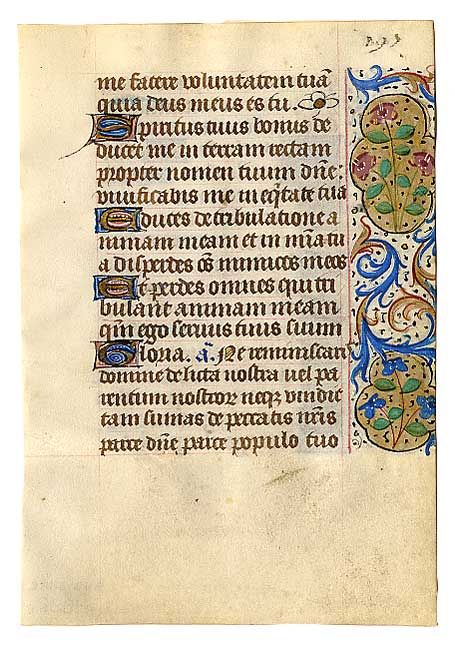 me facere voluntatem tuã
quia deus meus es tu.
Spiritus tuus bonus de
ducet me in terram rectam
propter nomen tuum dñe
vivificabis me in eq̃tate tua
Educes de tribulatione a
nimam meam et in mĩa tu
a disperdes oẽs inimicos meos
Et perdes omnes qui tri
bulant animam meam
qm̃ ego servus tuus sum
Gloria. añ. Ne reminiscaris
domine delicta nostra vel pa
rentum nostror neqz vindic
tam sumas de peccatis nr̃is
parce dñe parce populo tuo